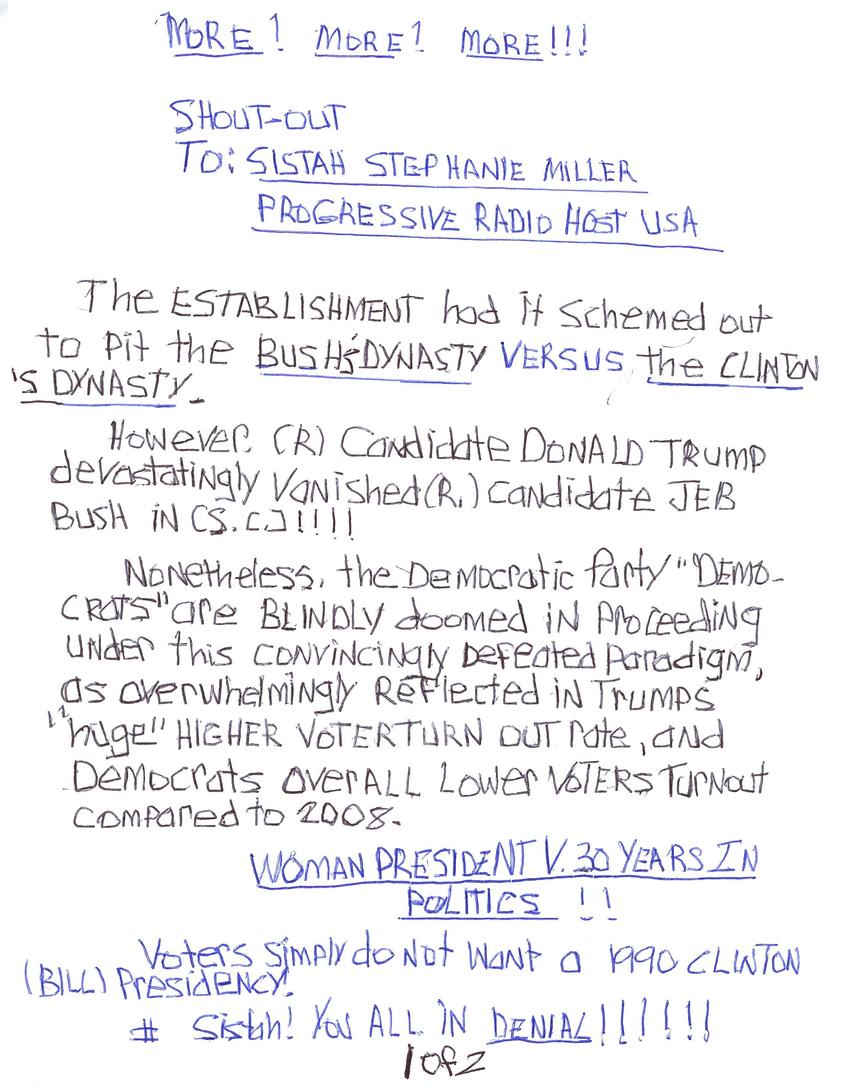 MORE! MORE! MORE!!!
SHOUT-OUT
TO: SISTAH STEPHANIE MILLER
PROGRESSIVE RADIO HOST USA
The ESTABLISHMENT had it schemed out
to pit the BUSH'S DYNASTY VERSUS the CLINTON
'S DYNASTY.
However, (R) Candidate DONALD TRUMP
devastatingly vanished (R.) candidate JEB
BUSH iN (S.C.)!!!!
NoNetheless, the Democratic Party "DEMO-
CRATS" are BLINDLY doomed iN proceediNg
under this convincingly Defeated Paradigm,
as overwhelmingly Reflected in Trumps
"huge" HIGHER VOTERTURN OUT rate, and
Democrats overALL Lower VOTERS TurNout
compared to 2008.
WOMAN PRESIDENT V. 30 YEARS IN
POLITICS !!
Voters simply do Not Want a 1990 CLINTON
(BILL) PresideNCY!
# Sistah! You ALL IN DENIAL!!!!!!
1 of 2